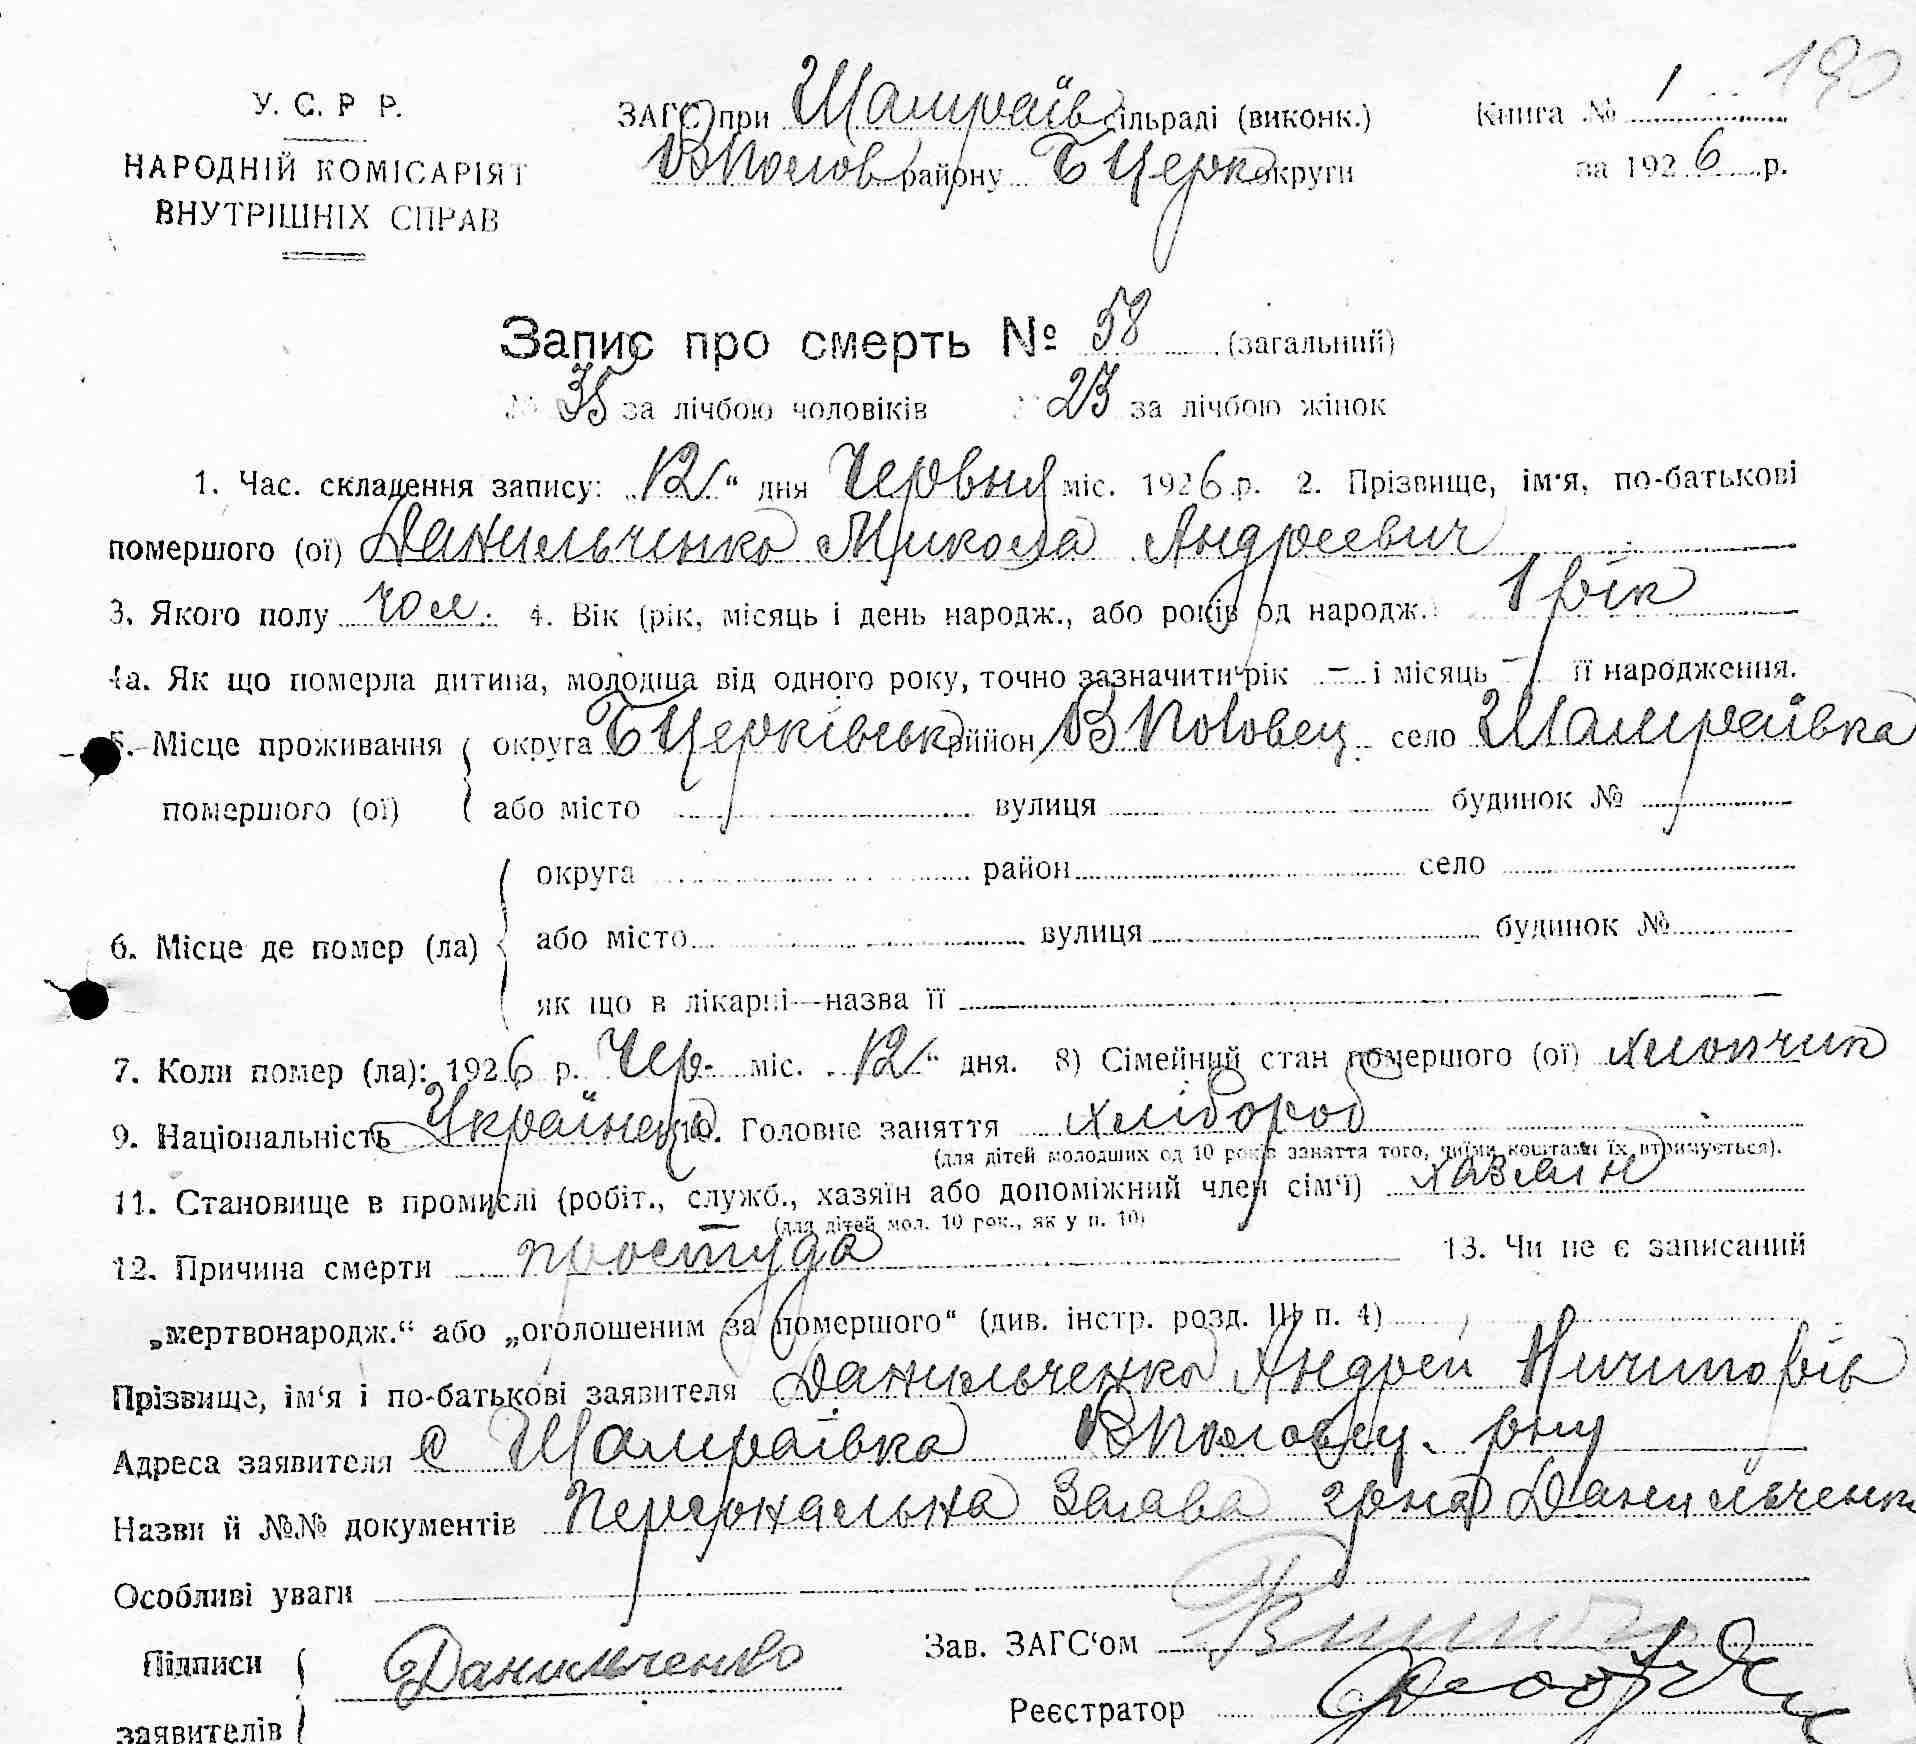 190
У. С. Р Р.
НАРОДНІЙ КОМІСАРІЯТ
ВНУТРІШНІХ СПРАВ
ЗАГС при Шамраїв сільраді (виконк.)
ВПолов району БЦерк округи
Книга № 1
за 1926 р.
Запис про смерть № 58 (загальний)
№ 35 за лічбою чоловіків № 23 за лічбою жінок
1. Час. складення запису: „12“ дня Червня міс. 1926 р. 2. Прізвище, ім'я, по-батькові
помершого (ої) Данильченко Микола Андреевич
3. Якого полу чол. 4. Вік (рік, місяць і день народж., або років од народж.) 1 рік
4а. Як що померла дитина, молодша від одного року, точно зазначити рік — і місяць — її народження.
5. Місце проживання округа БЦерківськ район ВПоловец. село Шамраївка
помершого (ої) або місто вулиця будинок №
округа район село
6. Місце де помер (ла) або місто вулиця будинок №
як що в лікарні—назва її
7. Коли помер (ла): 1926 р. Чер. міс. „12“ дня. 8) Сімейний стан помершого (ої) хлопчик
9. Національність Українець 10. Головне заняття хлібороб
(для дітей молодших од 10 років заняття того, чиїми коштами їх втримується).
11. Становище в промислі (робіт., служб., хазяїн або допоміжний член сім'ї) хазяін
(для дітей мол. 10 рок., як у п. 10)
12. Причина смерти простуда 13. Чи не є записаний
„мертвонародж.“ або „оголошеним за помершого“ (див. інстр. розд. III п. 4)
Прізвище, ім'я і по-батькові заявителя Данильченко Андрей Ничипорів
Адреса заявителя с Шамраївка ВПоловец. рну
Назви й №№ документів Персональна Заява грна Данильченк
Особливі уваги
Підписи Данильченко Зав. ЗАГС'ом
заявителів Реєстратор